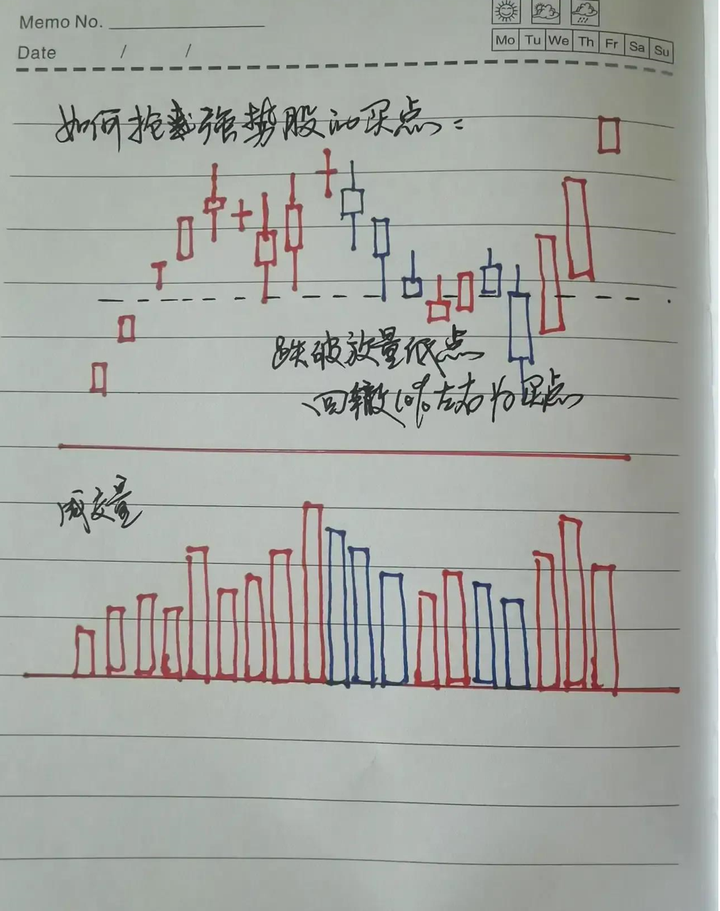 Memo No.
Date / /
Mo Tu We Th Fr Sa Su
如何抢到强势股的买点:
跌破放量低点
回撤10%左右为买点
成交量